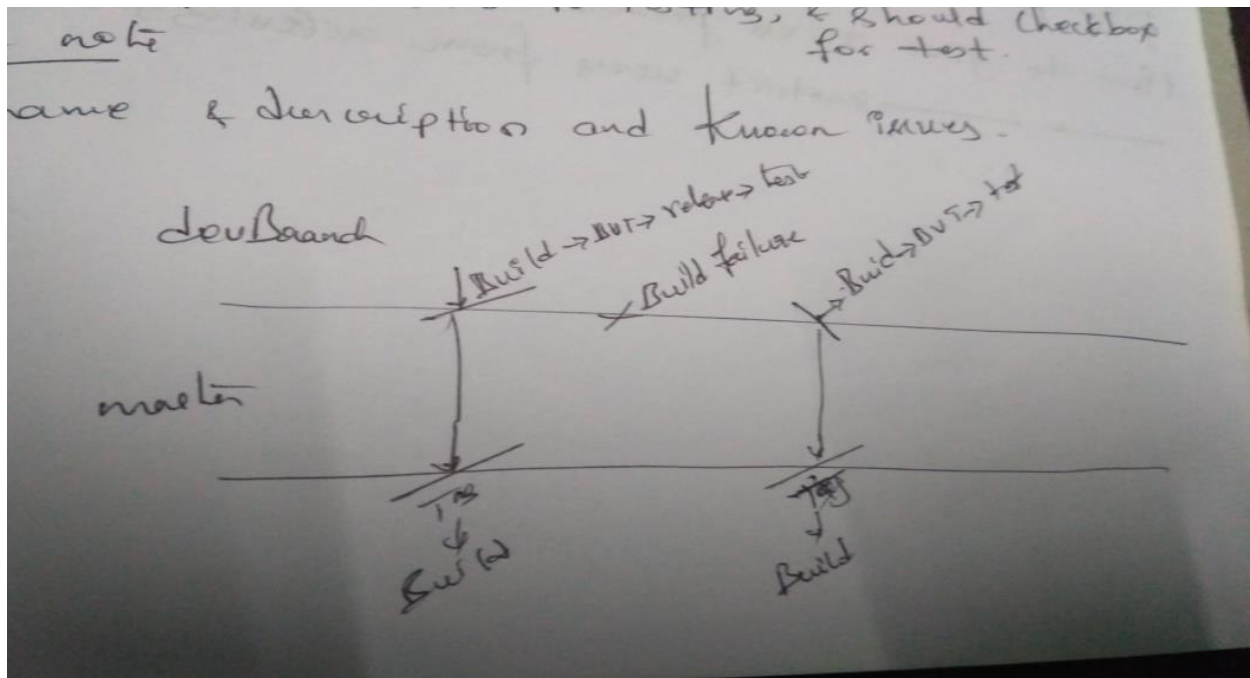 testing, & should checkbox
note for test.
ame & description and known issues.
devBranch
Build → BVT → release → test
Build failure
Build → BVT → test
master
Tag Tag
Build Build